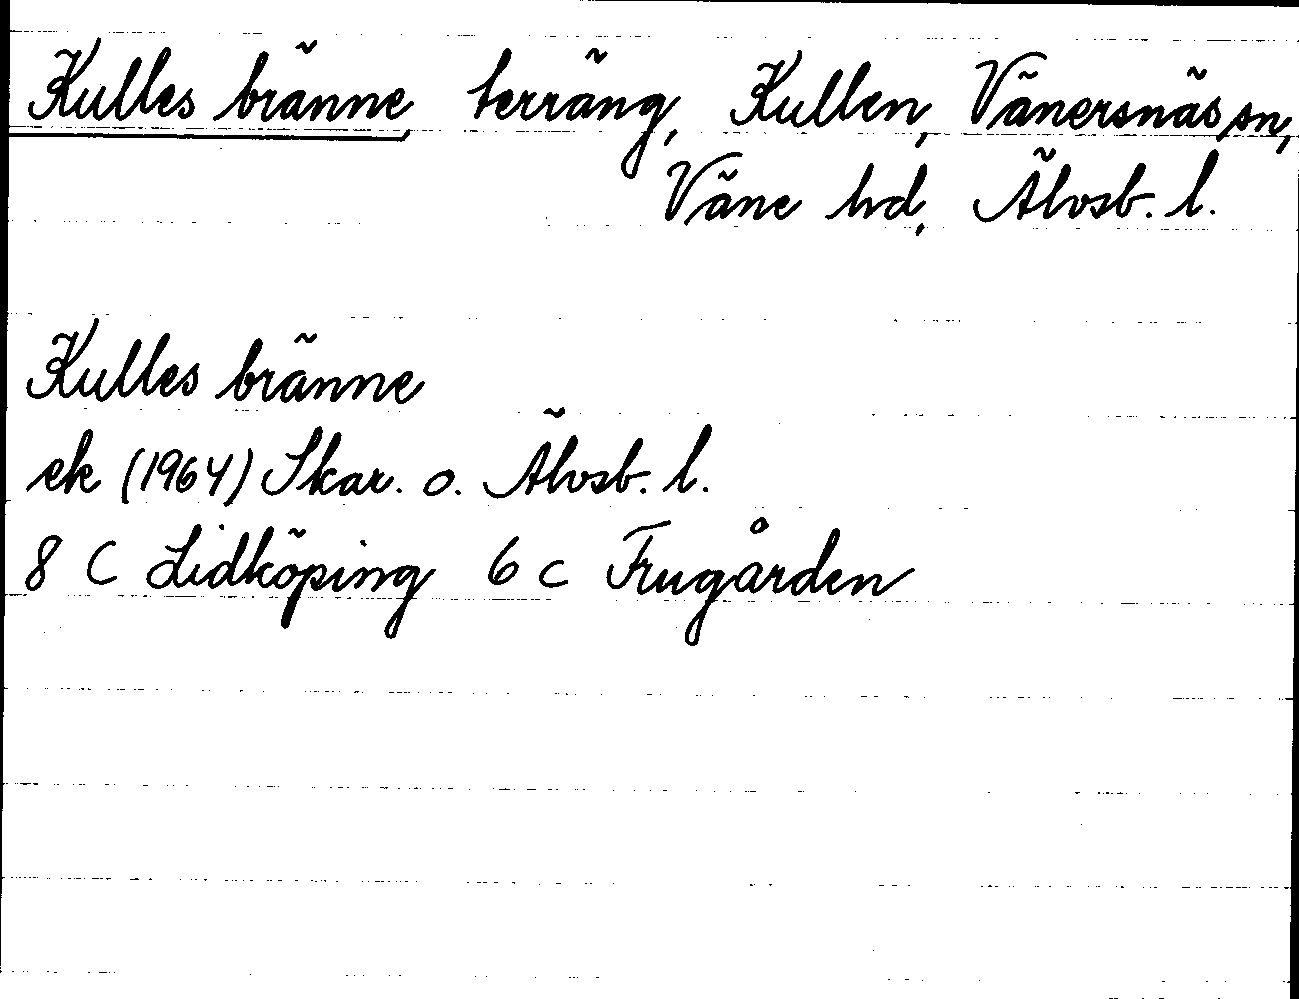 Kulles bränne, terräng, Kullen, Vänersnäs sn,
Väne hd, Älvsb. l.
Kulles bränne
ek (1964) Skar. o. Älvsb. l.
8 C Lidköping 6 c Frugården